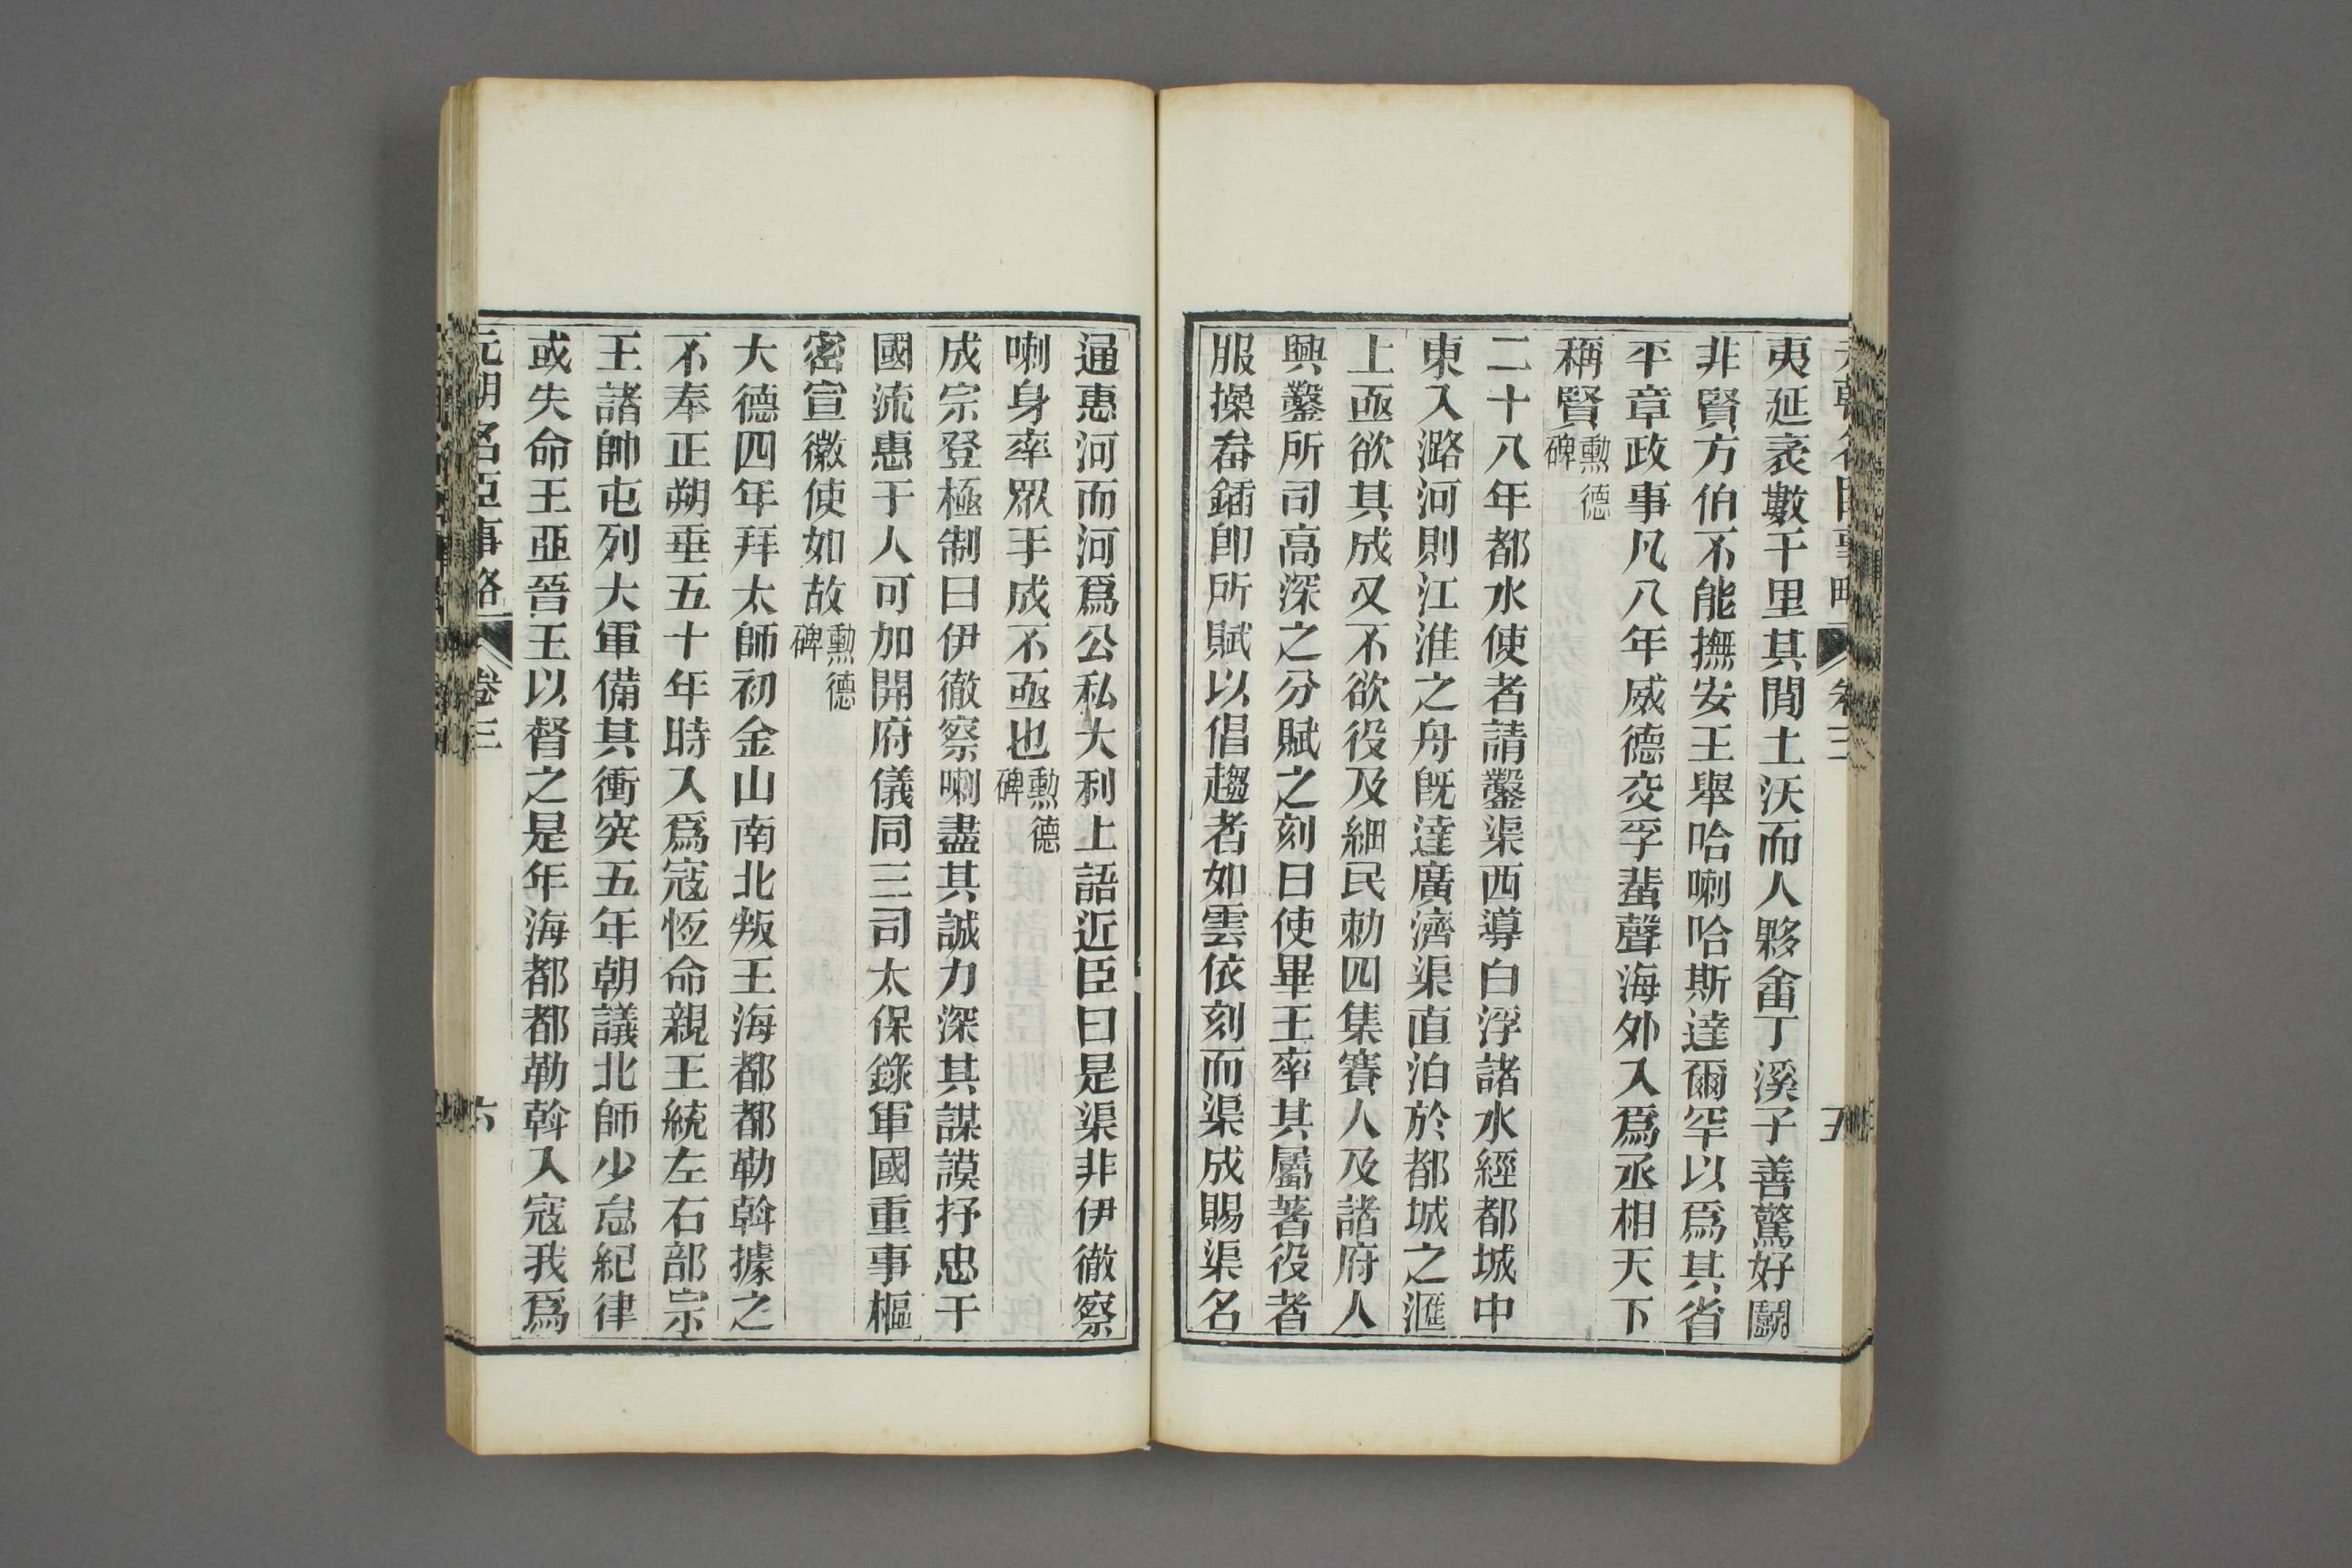 夷延袤數千里其閒土沃而人夥畬丁溪子善驚好鬭
非賢方伯不能撫安王舉哈喇哈斯達爾罕以爲其省
平章政事凡八年威德交孚蜚聲海外入爲丞相天下
稱賢勳德碑
二十八年都水使者請鑿渠西導白浮諸水經都城中
東入潞河則江淮之舟旣達廣濟渠直泊於都城之滙
上亟欲其成又不欲役及細民勅四集賽人及諸府人
興鑿所司高深之分賦之刻日使畢王率其屬著役者
服操畚鍤卽所賦以倡趨者如雲依刻而渠成賜渠名
通惠河而河爲公私大利上語近臣曰是渠非伊徹察
喇身率眾手成不亟也勳德碑
成宗登極制曰伊徹察喇盡其誠力深其謀謨抒忠于
國流惠于人可加開府儀同三司太保錄軍國重事樞
密宣徽使如故勳德碑
大德四年拜太師初金山南北叛王海都都勒斡據之
不奉正朔垂五十年時入爲寇恆命親王統左右部宗
王諸帥屯列大軍備其衝突五年朝議北師少怠紀律
或失命王亞晉王以督之是年海都都勒斡入寇我爲
元朝名臣事略 卷三 六